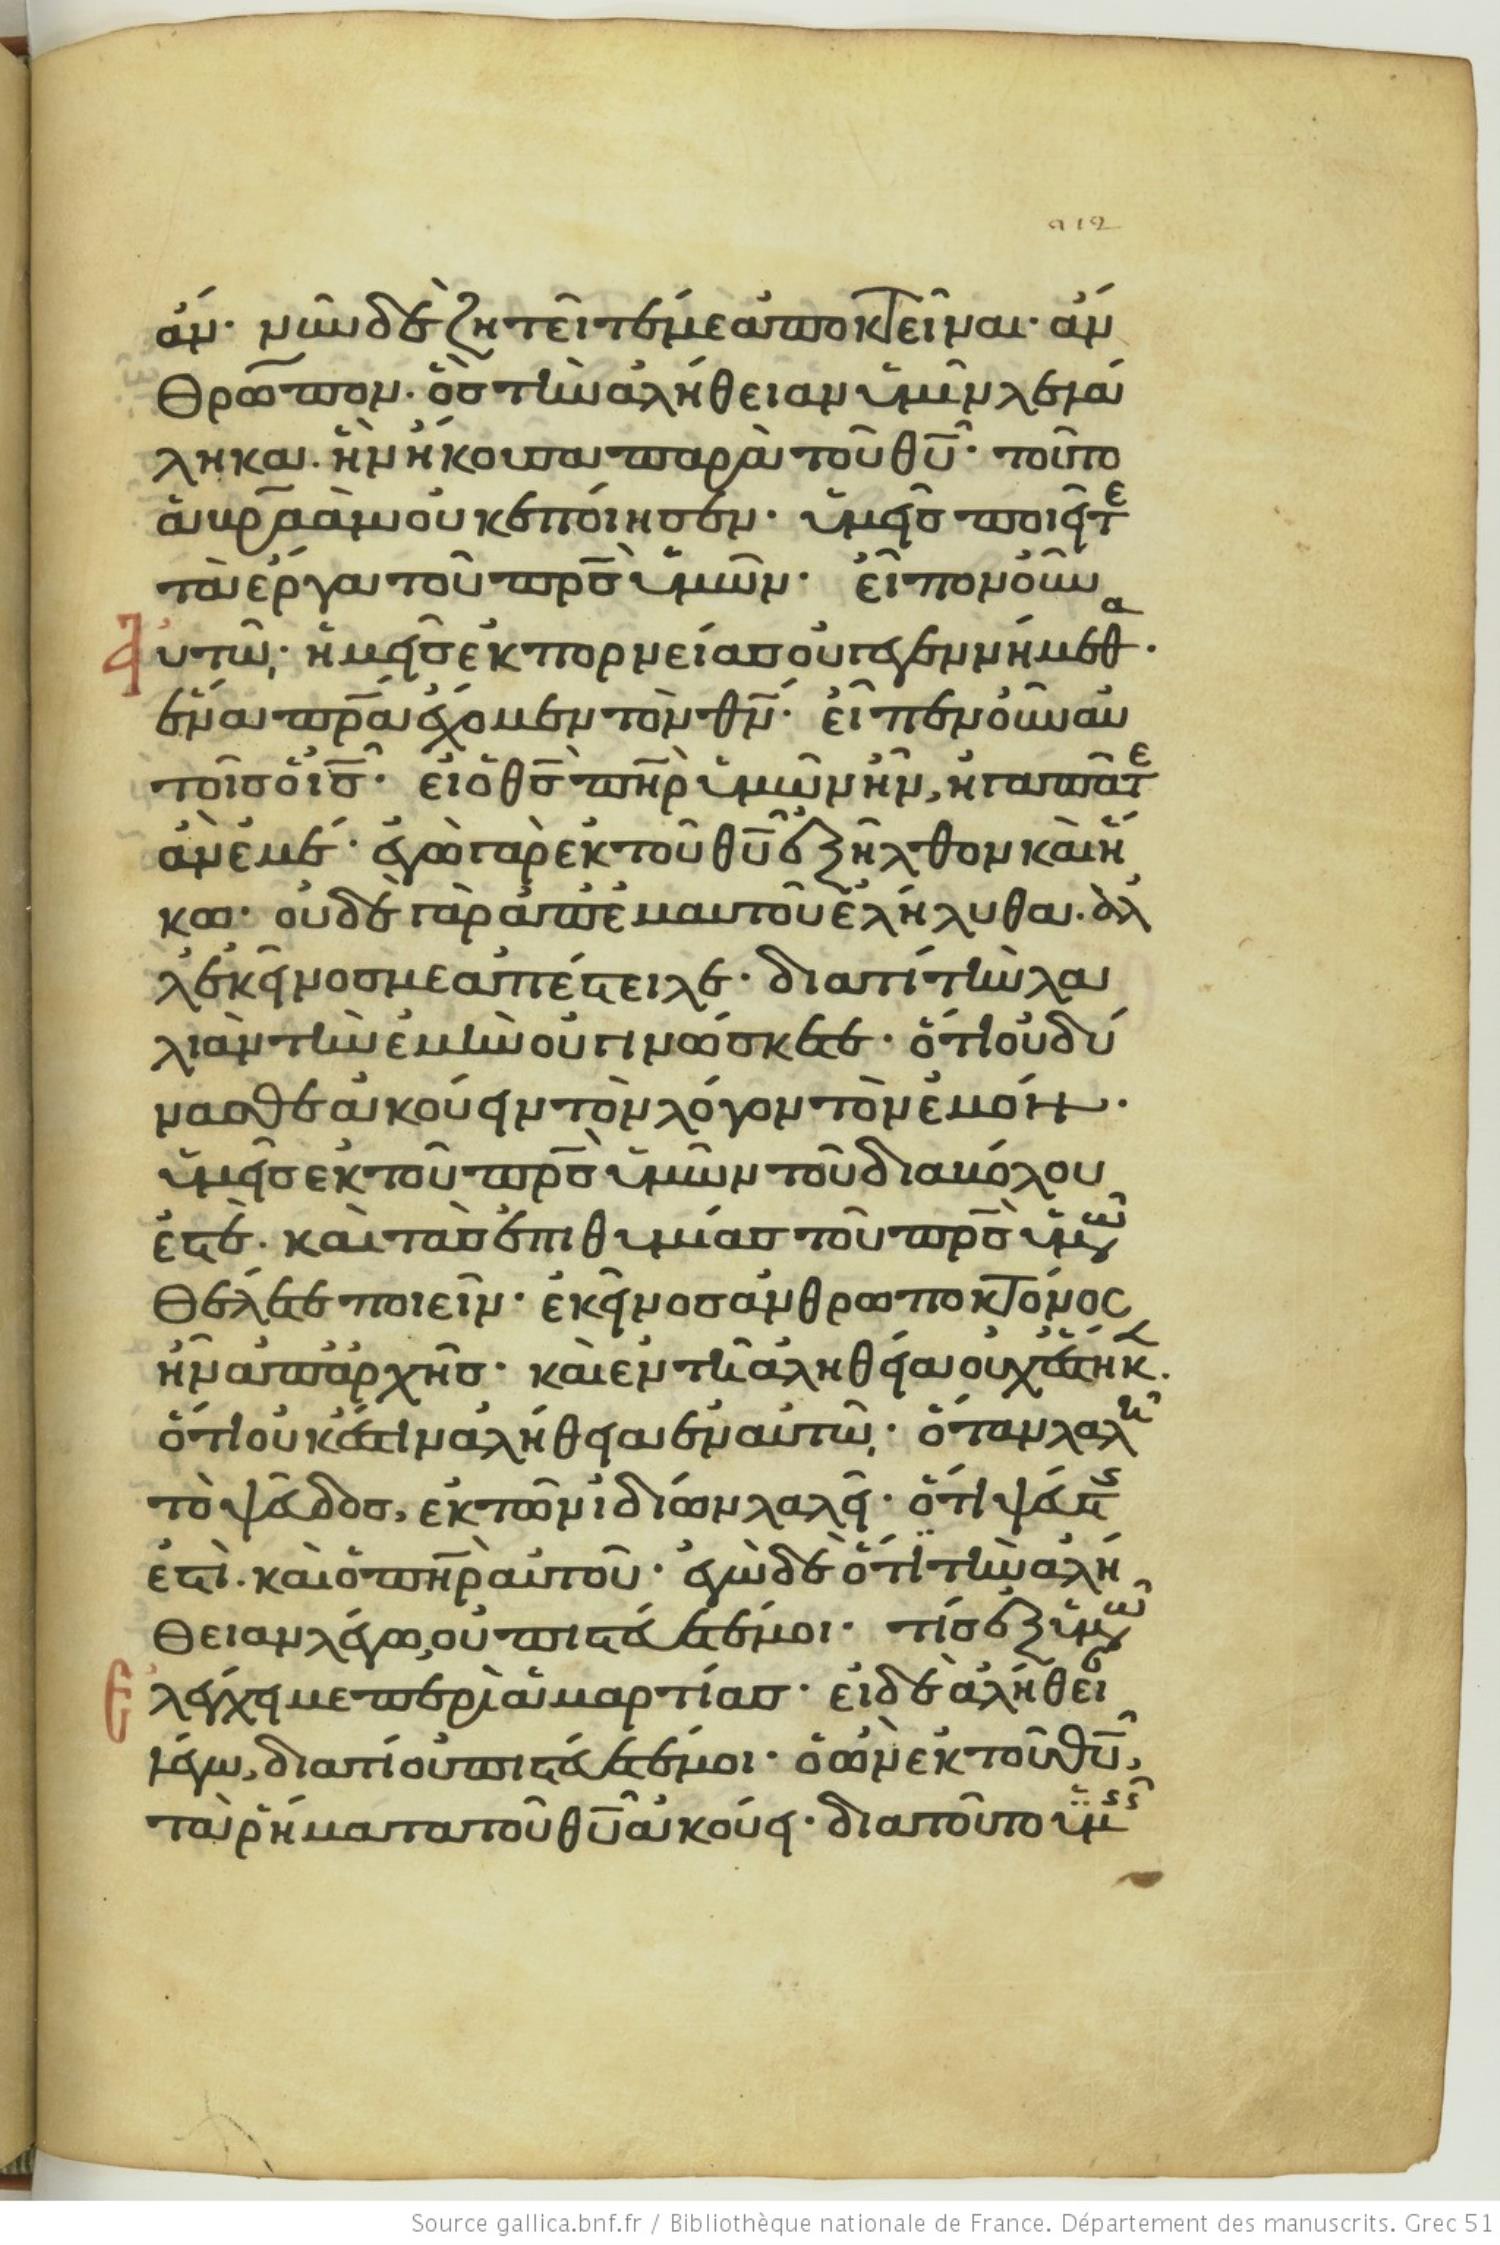 αιβ
ἄν· νῦν δὲ ζητεῖτέ με ἀποκτεῖναι· ἄν
θρωπον· ὃς τὴν ἀλήθειαν ὑμῖν λελά
ληκα· ἣν ἤκουσα παρὰ τοῦ θυ· τοῦτο
ἀβραὰμ οὐκ ἐποίησεν· ὑμεῖς ποιεῖτε
τὰ ἔργα τοῦ πρσ ὑμῶν· εἶπον οὖν
αὐτῶ· ἡμεῖς ἐκ πορνείας οὐ γεγεννήμεθα·
ἕνα πρα ἔχομεν τὸν θν· εἶπεν οὖν αὐ
τοῖς ὁ ις· εἰ ὁ θς πηρ ὑμῶν ἦν, ἠγαπᾶτε
ἂν ἐμέ· ἐγὼ γὰρ ἐκ τοῦ θυ ἐξῆλθον καὶ ἥ
κω· οὐδὲ γὰρ ἀπ' ἐμαυτοῦ ἐλήλυθα· ἀλ
λ' ἐκεῖνος με ἀπέστειλε· διατί τὴν λα
λιὰν τὴν ἐμὴν οὐ γινώσκετε· ὅτι οὐ δύ
νασθε ἀκούειν τὸν λόγον τὸν ἐμόν·
ὑμεῖς ἐκ τοῦ πρσ ὑμῶν τοῦ διαβόλου
ἐστέ· καὶ τὰς ἐπιθυμίας τοῦ πρσ ὑμῶν
θέλετε ποιεῖν· ἐκεῖνος ἀνθρωποκτόνος
ἦν ἀπ' ἀρχῆς· καὶ ἐν τῆ ἀληθεία οὐχ ἕστηκεν·
ὅτι οὐκ ἔστιν ἀλήθεια ἐν αὐτῶ· ὅταν λαλῆ
τὸ ψεῦδος, ἐκ τῶν ἰδίων λαλεῖ· ὅτι ψεύστης
ἐστὶ· καὶ ὁ πηρ αὐτοῦ· ἐγὼ δὲ ὅτι τὴν ἀλή
θειαν λέγω, οὐ πιστεύετέ μοι· τίς ἐξ ὑμῶν
ἐλέγχει με περὶ ἁμαρτίας· εἰ δὲ ἀλήθειαν
λέγω, διατί οὐ πιστεύετέ μοι· ὁ ὢν ἐκ τοῦ θυ,
τὰ ῥήματα τοῦ θυ ἀκούει· διατοῦτο ὑμεῖς
Source gallica.bnf.fr / Bibliothèque nationale de France. Département des manuscrits. Grec 51